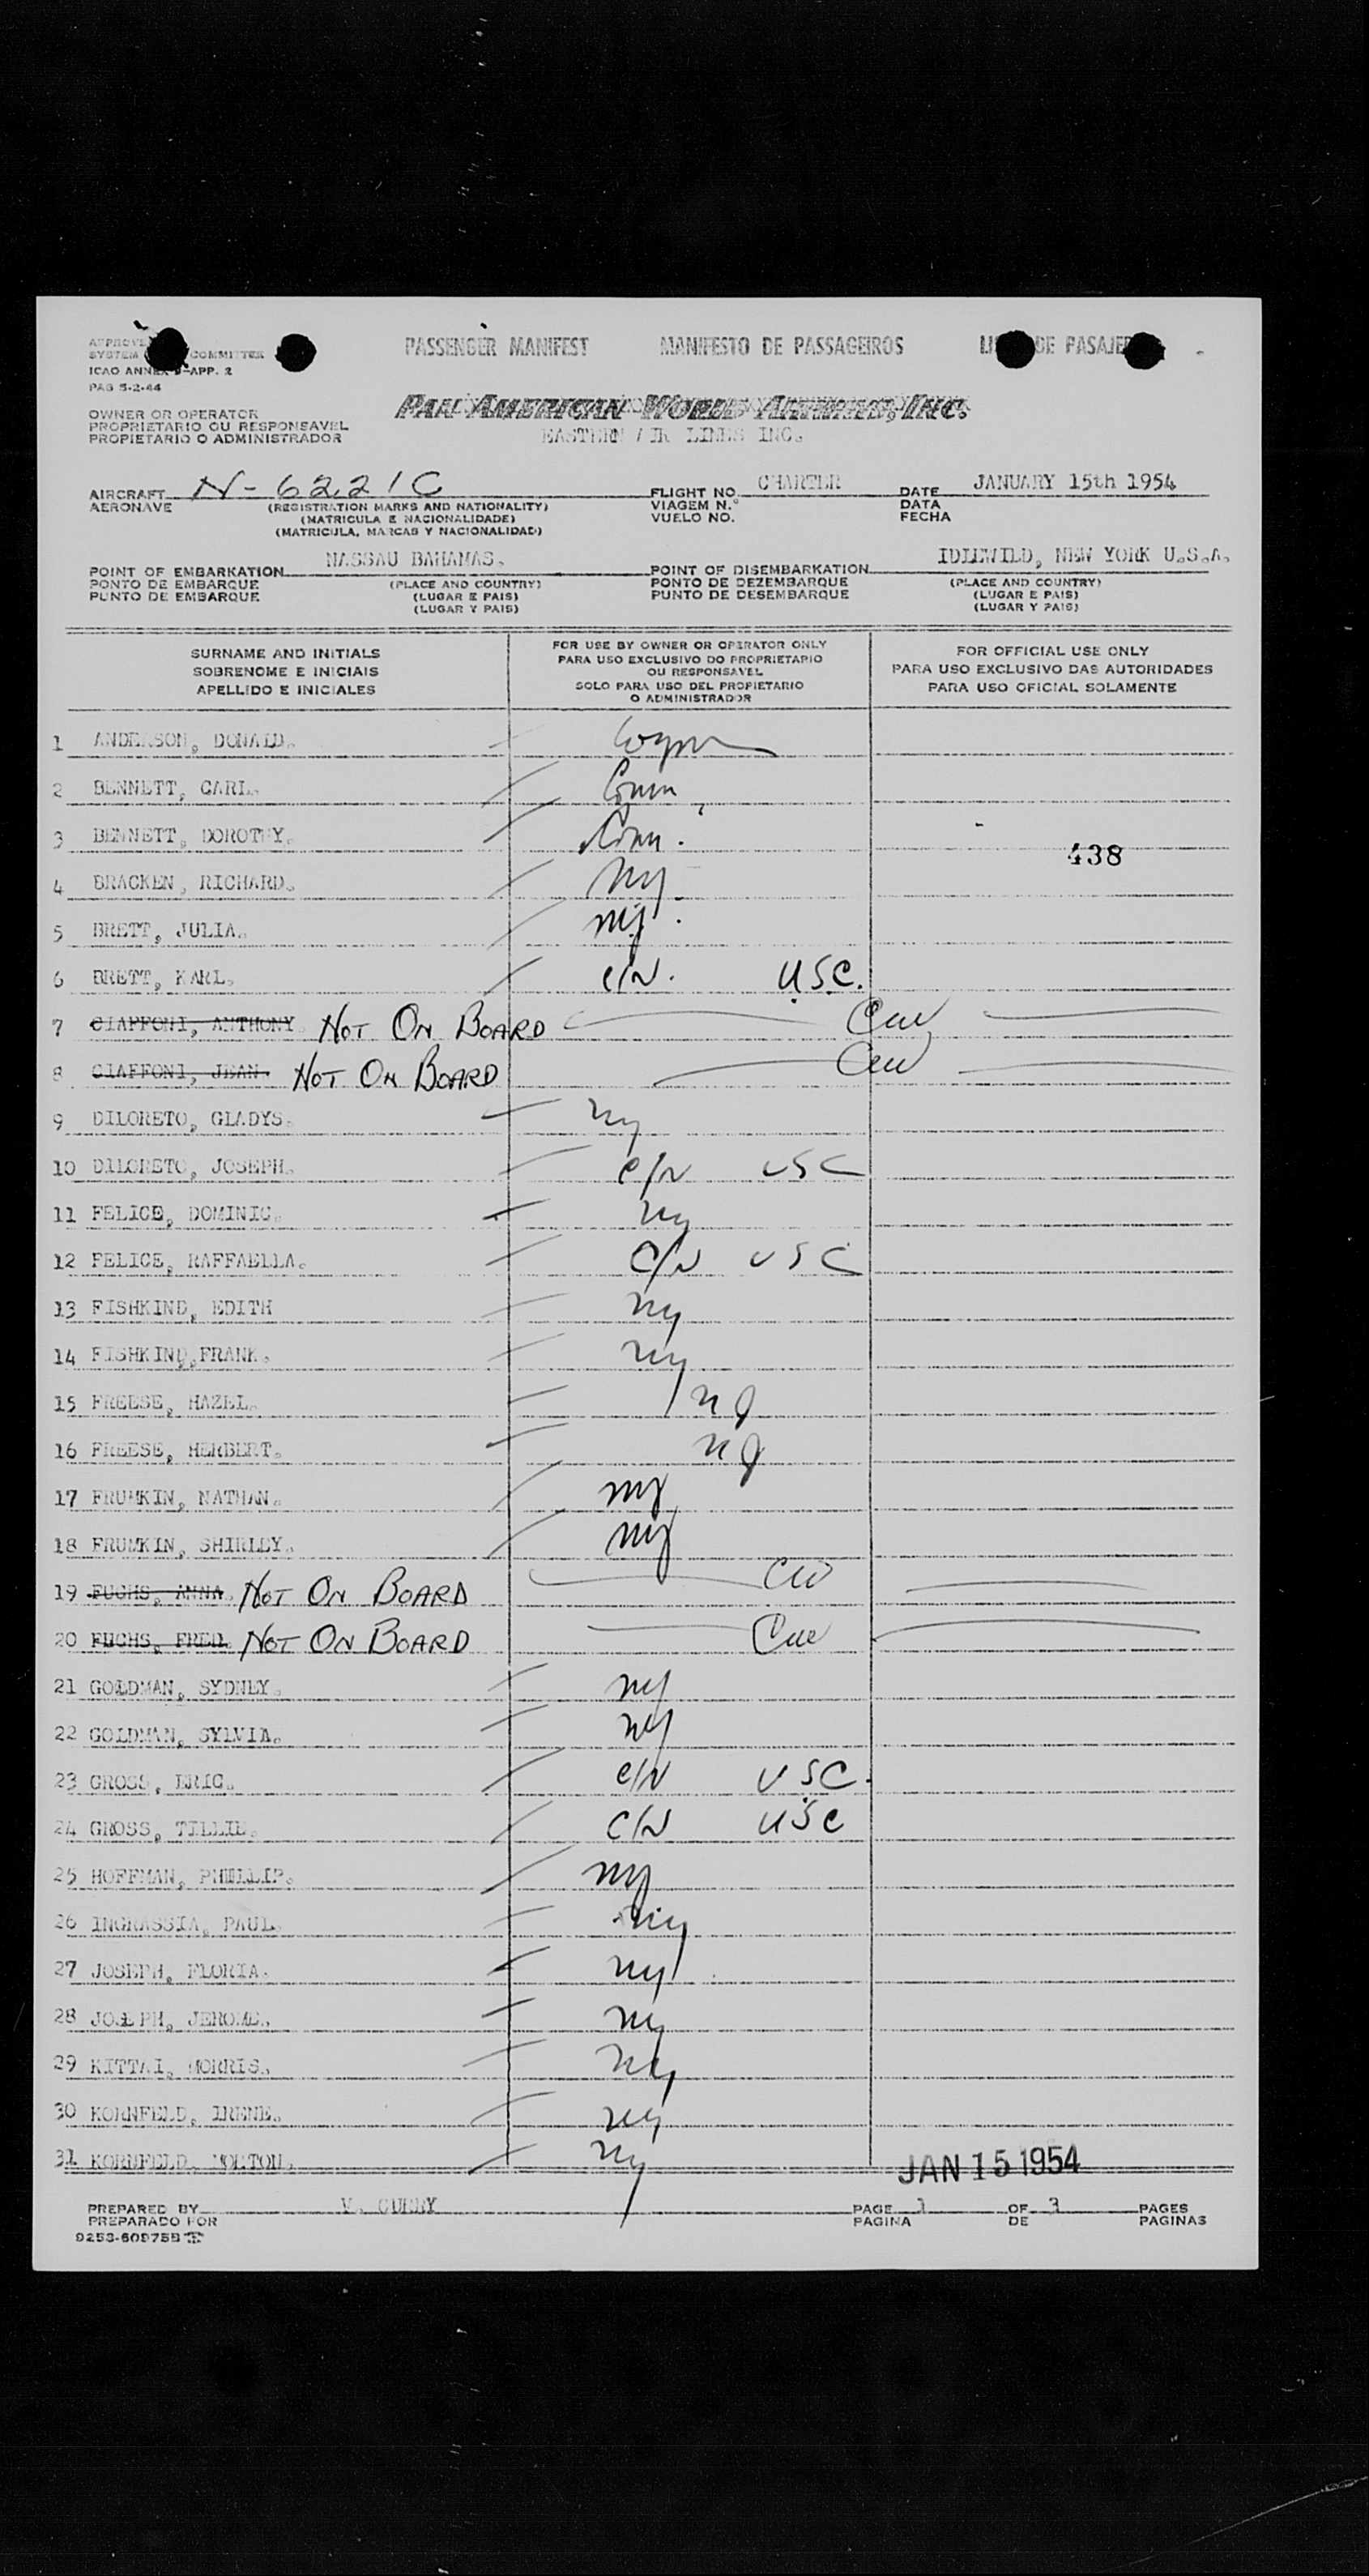 PASSENGER MANIFEST MANIFESTO DE PASSAGEIROS DE
SYSTEM COMMITTEE
ICAO ANNEX 9-APP. 2
PAG 5-2-44
OWNER OR OPERATOR
PROPRIETARIO OU RESPONSAVEL
PROPIETARIO O ADMINISTRADOR
PAN AMERICAN WORLD AIRWAYS, INC.
EASTERN AIR LINES INC.
AIRCRAFT N-6221C FLIGHT NO. CHARTER DATE JANUARY 15th 1954
AERONAVE (REGISTRATION MARKS AND NATIONALITY) VIAGEM N.º DATA
(MATRICULA E NACIONALIDADE) VUELO NO. FECHA
(MATRICULA, MARCAS Y NACIONALIDAD)
POINT OF EMBARKATION NASSAU BAHAMAS. POINT OF DISEMBARKATION IDLEWILD, NEW YORK U.S.A.
PONTO DE EMBARQUE (PLACE AND COUNTRY) PONTO DE DEZEMBARQUE (PLACE AND COUNTRY)
PUNTO DE EMBARQUE (LUGAR E PAIS) PUNTO DE DESEMBARQUE (LUGAR E PAIS)
(LUGAR Y PAIS) (LUGAR Y PAIS)
SURNAME AND INITIALS
SOBRENOME E INICIAIS
APELLIDO E INICIALES
FOR USE BY OWNER OR OPERATOR ONLY
PARA USO EXCLUSIVO DO PROPRIETARIO
OU RESPONSAVEL
SOLO PARA USO DEL PROPIETARIO
O ADMINISTRADOR
FOR OFFICIAL USE ONLY
PARA USO EXCLUSIVO DAS AUTORIDADES
PARA USO OFICIAL SOLAMENTE
1 ANDERSON, DONALD.
2 BENNETT, CARL. Conn
3 BENNETT, DOROTHY. Conn.
438
4 BRACKEN, RICHARD. ny
5 BRETT, JULIA. ny.
6 BRETT, KARL. C/N. U.S.C.
7 CIAFFONI, ANTHONY NOT ON BOARD
8 CIAFFONI, JEAN. NOT ON BOARD
9 DILORETO, GLADYS. ny
10 DILORETO, JOSEPH. C/N USC
11 FELICE, DOMINIC. ny
12 FELICE, RAFFAELLA. C/N USC
13 FISHKIND, EDITH ny
14 FISHKIND, FRANK. ny
15 FREESE, HAZEL. nJ
16 FREESE, HERBERT. nJ
17 FRUMKIN, NATHAN. ny
18 FRUMKIN, SHIRLEY. ny
19 FUCHS, ANNA. NOT ON BOARD
20 FUCHS, FRED. NOT ON BOARD
21 GOLDMAN, SYDNEY. ny
22 GOLDMAN, SYLVIA. ny
23 GROSS, ERIC. C/N USC.
24 GROSS, TILLIE. C/N USC
25 HOFFMAN, PHILLIP. ny
26 INGRASSIA, PAUL. ny
27 JOSEPH, FLORIA. ny
28 JOSEPH, JEROME. ny
29 KITTAI, MORRIS. ny
30 KORNFELD, IRENE. ny
31 KORNFELD, MORTON. ny
JAN 15 1954
PREPARED BY V. CURRY PAGE 1 OF 3 PAGES
PREPARADO POR PAGINA DE PAGINAS